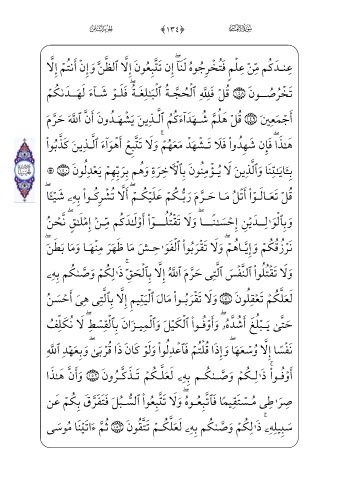 سورة الأنعام ﴿١٣٤﴾ الجزء الثامن
عِندَكُم مِّنْ عِلْمٍ فَتُخْرِجُوهُ لَنَآ ۖ إِن تَتَّبِعُونَ إِلَّا ٱلظَّنَّ وَإِنْ أَنتُمْ إِلَّا
تَخْرُصُونَ ١٤٨ قُلْ فَلِلَّهِ ٱلْحُجَّةُ ٱلْبَٰلِغَةُ ۖ فَلَوْ شَآءَ لَهَدَىٰكُمْ
أَجْمَعِينَ ١٤٩ قُلْ هَلُمَّ شُهَدَآءَكُمُ ٱلَّذِينَ يَشْهَدُونَ أَنَّ ٱللَّهَ حَرَّمَ
هَٰذَا ۖ فَإِن شَهِدُوا۟ فَلَا تَشْهَدْ مَعَهُمْ ۚ وَلَا تَتَّبِعْ أَهْوَآءَ ٱلَّذِينَ كَذَّبُوا۟
بِـَٔايَٰتِنَا وَٱلَّذِينَ لَا يُؤْمِنُونَ بِٱلْءَاخِرَةِ وَهُم بِرَبِّهِمْ يَعْدِلُونَ ١٥٠ ۞
قُلْ تَعَالَوْا۟ أَتْلُ مَا حَرَّمَ رَبُّكُمْ عَلَيْكُمْ ۖ أَلَّا تُشْرِكُوا۟ بِهِۦ شَيْـًٔا ۖ
وَبِٱلْوَٰلِدَيْنِ إِحْسَٰنًا ۖ وَلَا تَقْتُلُوٓا۟ أَوْلَٰدَكُم مِّنْ إِمْلَٰقٍ ۖ نَّحْنُ
نَرْزُقُكُمْ وَإِيَّاهُمْ ۖ وَلَا تَقْرَبُوا۟ ٱلْفَوَٰحِشَ مَا ظَهَرَ مِنْهَا وَمَا بَطَنَ ۖ
وَلَا تَقْتُلُوا۟ ٱلنَّفْسَ ٱلَّتِى حَرَّمَ ٱللَّهُ إِلَّا بِٱلْحَقِّ ۚ ذَٰلِكُمْ وَصَّىٰكُم بِهِۦ
لَعَلَّكُمْ تَعْقِلُونَ ١٥١ وَلَا تَقْرَبُوا۟ مَالَ ٱلْيَتِيمِ إِلَّا بِٱلَّتِى هِىَ أَحْسَنُ
حَتَّىٰ يَبْلُغَ أَشُدَّهُۥ ۖ وَأَوْفُوا۟ ٱلْكَيْلَ وَٱلْمِيزَانَ بِٱلْقِسْطِ ۖ لَا نُكَلِّفُ
نَفْسًا إِلَّا وُسْعَهَا ۖ وَإِذَا قُلْتُمْ فَٱعْدِلُوا۟ وَلَوْ كَانَ ذَا قُرْبَىٰ ۖ وَبِعَهْدِ ٱللَّهِ
أَوْفُوا۟ ۚ ذَٰلِكُمْ وَصَّىٰكُم بِهِۦ لَعَلَّكُمْ تَذَكَّرُونَ ١٥٢ وَأَنَّ هَٰذَا
صِرَٰطِى مُسْتَقِيمًا فَٱتَّبِعُوهُ ۖ وَلَا تَتَّبِعُوا۟ ٱلسُّبُلَ فَتَفَرَّقَ بِكُمْ عَن
سَبِيلِهِۦ ۚ ذَٰلِكُمْ وَصَّىٰكُم بِهِۦ لَعَلَّكُمْ تَتَّقُونَ ١٥٣ ثُمَّ ءَاتَيْنَا مُوسَى